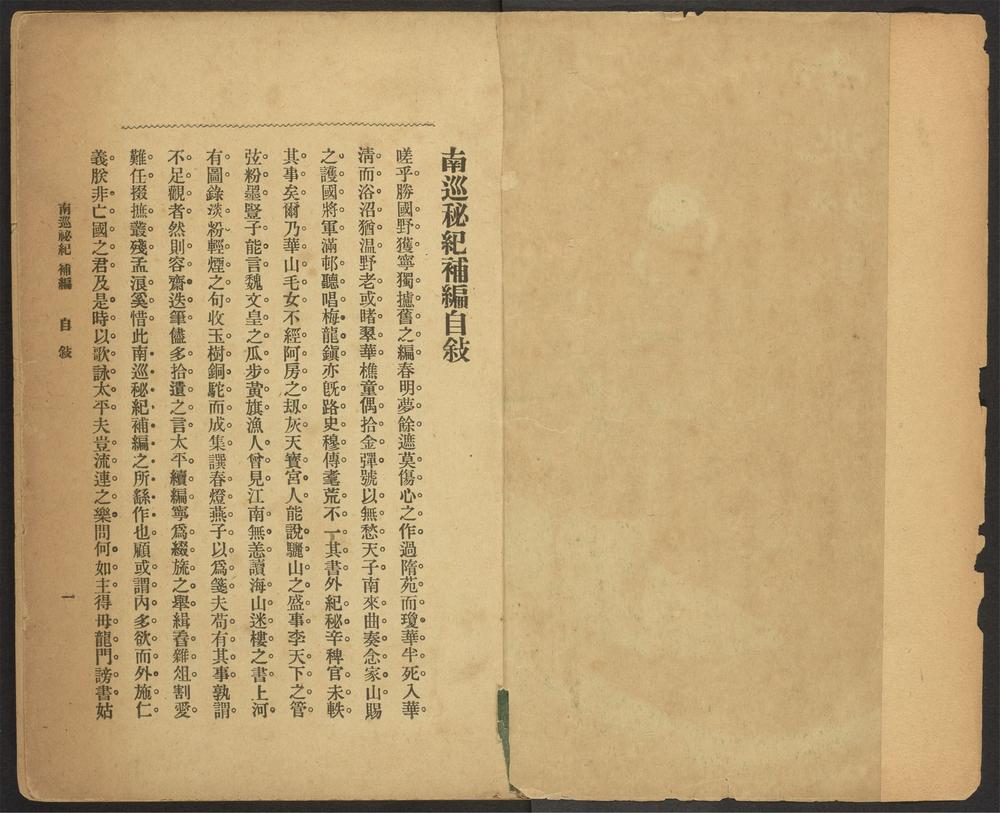 南巡秘紀補編自敍
嗟乎勝國野獲寧獨攄舊之編春明夢餘遮莫傷心之作過隋苑而瓊華半死入華
淸而浴沼猶温野老或睹翠華樵童偶拾金彈號以無愁天子南來曲奏念家山賜
之護國將軍滿邨聽唱梅龍鎭亦旣路史穆傳耄荒不一其書外紀秘辛稗官未軼
其事矣爾乃華山毛女不經阿房之刼灰天寳宮人能說驪山之盛事李天下之管
弦粉墨豎子能言魏文皇之瓜步黃旗漁人曾見江南無恙讀海山迷樓之書上河
有圖錄淡粉輕煙之句收玉樹銅駝而成集譔春燈燕子以爲箋夫苟有其事孰謂
不足觀者然則容齋迭筆儘多拾遺之言太平續編寧爲綴旒之舉緝舂雜俎割愛
難任掇摭叢殘孟浪奚惜此南巡秘紀補編之所繇作也顧或謂內多欲而外施仁
義朕非亡國之君及是時以歌詠太平夫豈流連之樂問何如主得毋龍門謗書姑
南巡祕紀 補編　自敍　一